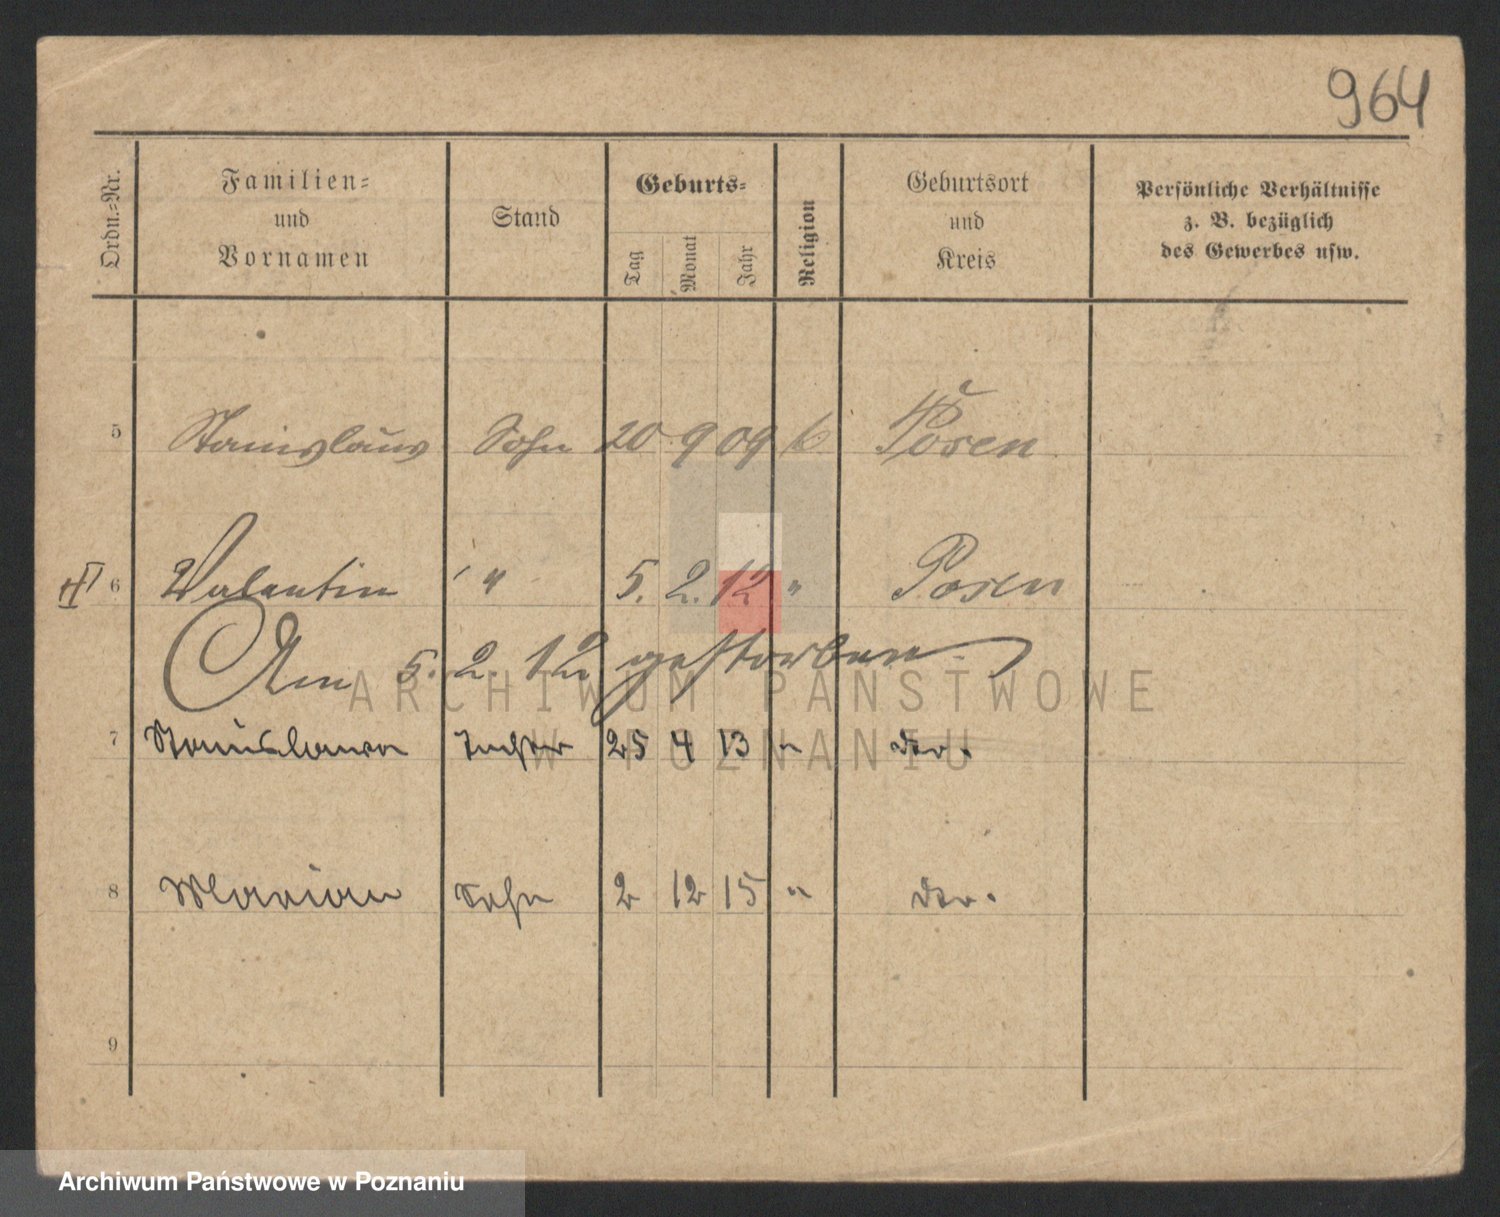 964
Ordn.-Nr.
Familien-
und
Vornamen
Stand
Geburts-
Tag
Monat
Jahr
Religion
Geburtsort
und
Kreis
Persönliche Verhältnisse
z. B. bezüglich
des Gewerbes usw.
5 Stanislaus Sohn 20 9 09 k Posen
6 Valentin " 5. 2. 12 " Posen
Am 5. 2. 12 gestorben
7 Stanislawa Tochter 25 4 13 "
8 Marian Sohn 2 12 15 "
9
ARCHIWUM PAŃSTWOWE
W POZNANIU
Archiwum Państwowe w Poznaniu